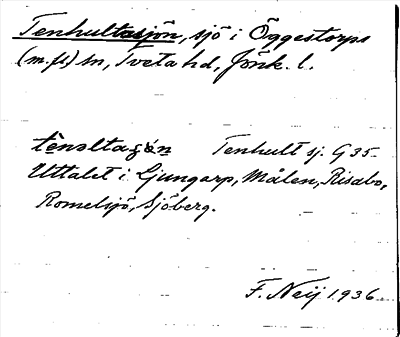 Tenhultasjön, sjö i Öggestorps
(m.fl) sn, Tveta hd, Jönk. l.
tènoltaʃön Tenhult sj. G 35
Uttalet i Ljungarp, Målen, Risabo,
Romelsjö, Sjöberg.
F. Neij 1936